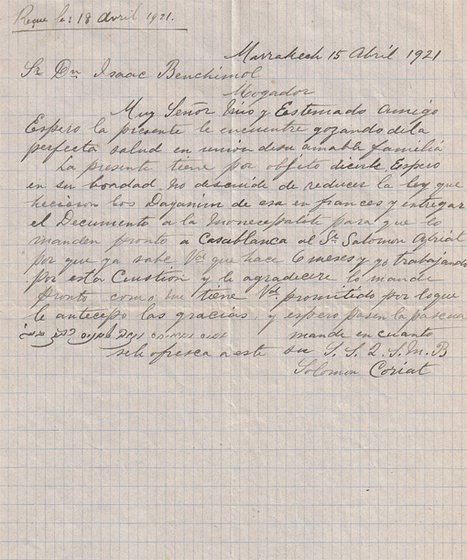 Reçue le: 18 Avril 1921.
Marrakech 15 Abril 1921
Sr Dn Isaac Benchimol
Mogador
Muy Señor mio y Estemado Amigo
Espero la presente le encuentre gozando de la
perfecta salud en union de su amable familia
La presente tiene por objeto dicirle Espero
en su bondad no descuide de reducir la ley que
hicieron los Dayanim de esa en frances y entregar
el Documento a la para que lo
manden pronto a Casablanca al Sr Salomon
por que ya sabe Vd que hace 6 meses y yo trabajando
por esta Cuestion y le agradecere lo mande
pronto como me tiene Vd promitido por loque
le antecepo las gracias, y espero pasen la pascua
mande en cuanto
se le ofresca a este su S. S. Q. S. M. B
Solomon Coriat